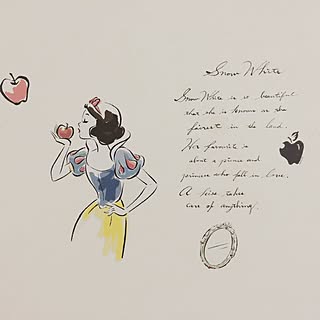 Snow White
Snow White is so beautiful
that she is known as the
fairest in the land.
Her favorite is
about a prince and
princess who fall in love.
A kiss takes
care of anything.